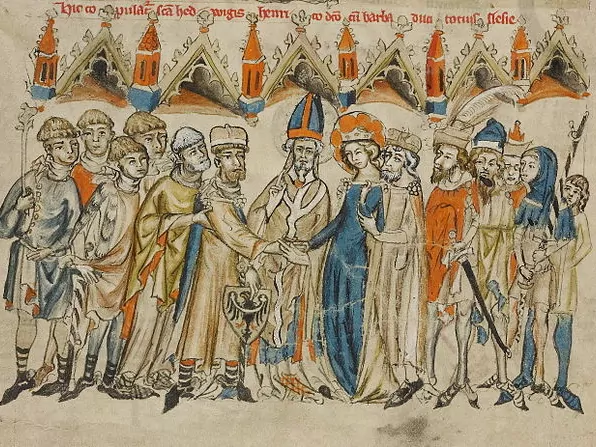 Hic co pulat᷑ scā hed wigis henri co dc̄o cū barba duci tocius slesie